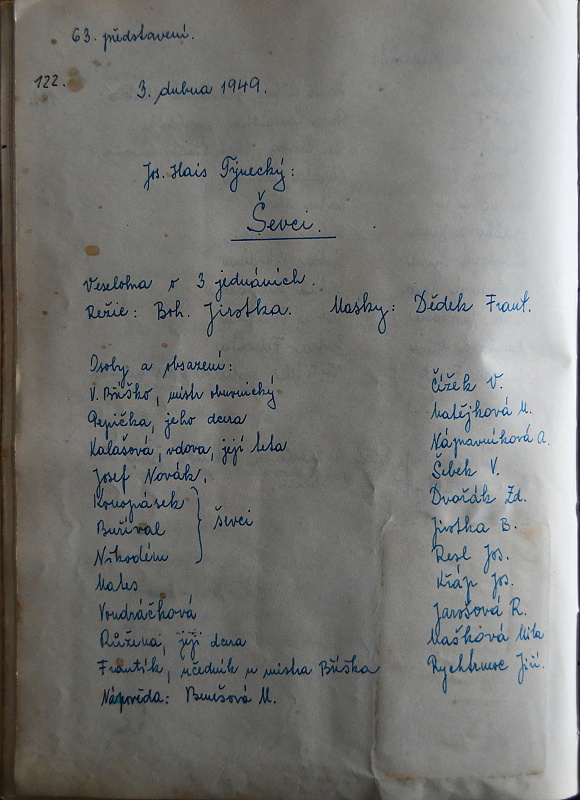 63. představení.
122.
3. dubna 1949.
Jos. Hais Týnecký:
Ševci.
Veselohra o 3 jednáních.
Režie: Boh. Jirotka. Masky: Dědek Frant.
Osoby a obsazení:
V. Bříško, mistr obuvnický Čížek V.
Pepička, jeho dcera Matějková M.
Kalašová, vdova, její teta Nápravníková A.
Josef Novák, Šebek V.
Konopásek Dvořák Zd.
Buřival ševci Jirotka B.
Nikodém Resl Jos.
Mates Kráp Jos.
Vondráčková Jarošová R.
Růžena, její dcera Mašková Mila
Frantík, učedník u mistra Bříška Rychtmoc Jiří.
Nápověda: Benešová M.